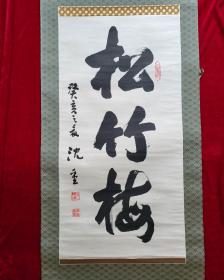 松竹梅
癸亥之春 沈